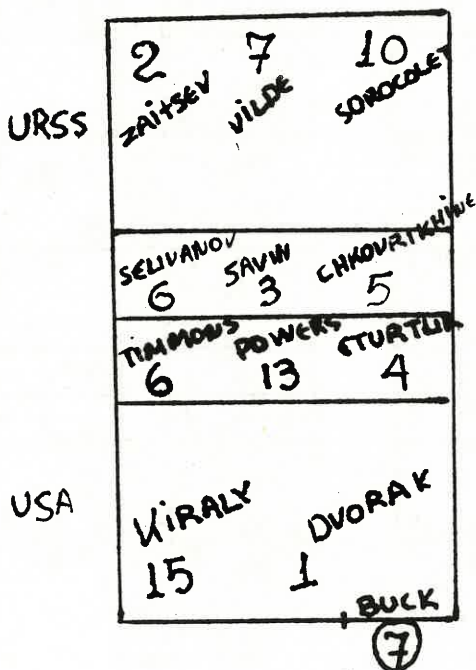 2 7 10
ZAITSEV VILDE SOROCOLET
URSS
SELIVANOV SAVIN CHKOURIKHINE
6 3 5
TIMMONS POWERS STURTLIK
6 13 4
USA
KIRALY DVORAK
15 1
BUCK
7